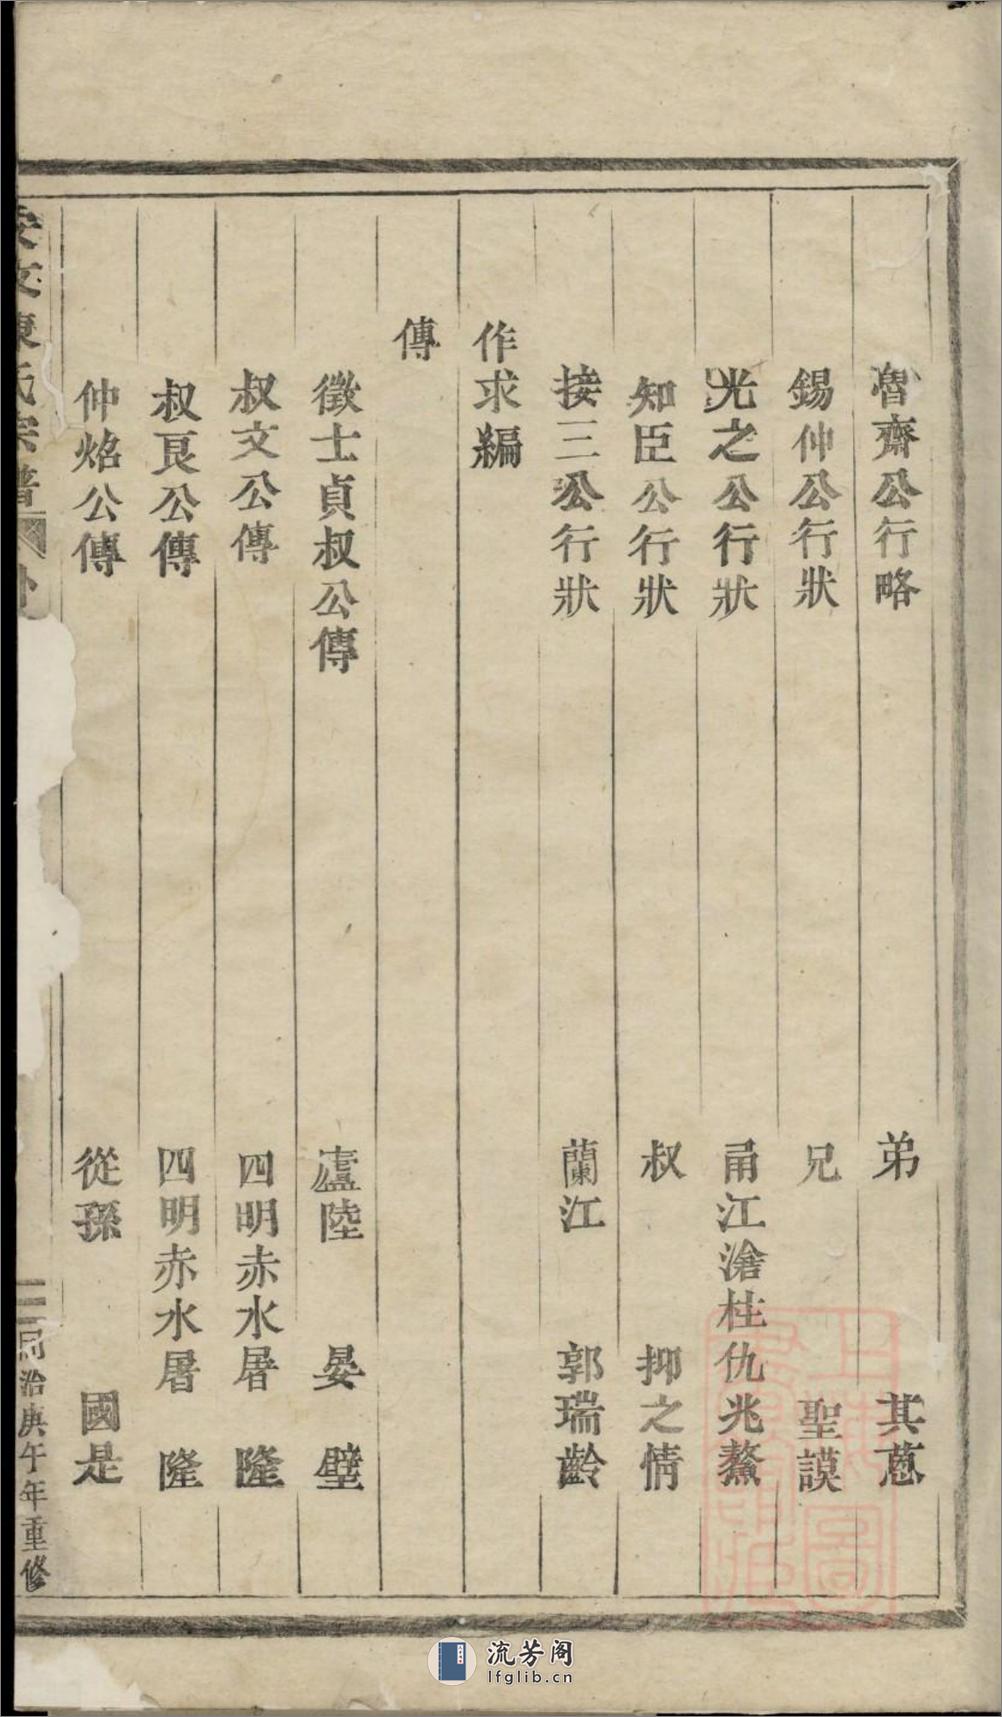 魯齋公行略 弟 其蒠
錫仲公行狀 兄 聖謨
光之公行狀 甬江滄柱仇兆鰲
知臣公行狀 叔 抑之情
接三公行狀 蘭江 郭瑞齡
作求編
傳
徵士貞叔公傳 廬陸 晏璧
叔文公傳 四明赤水屠 隆
叔良公傳 四明赤水屠 隆
仲焰公傳 從孫 國是
安文陳氏宗譜
同治庚午年重修
流芳阁
lfglib.cn